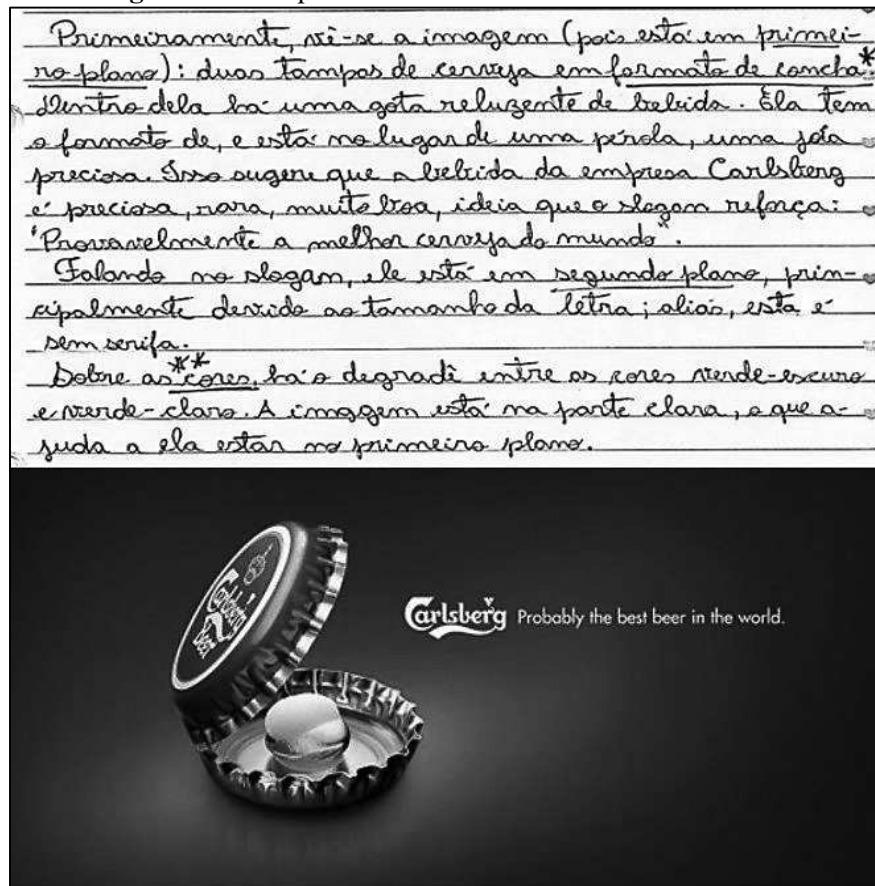 Primeiramente, vê-se a imagem (pois está em primei-
ro plano): duas tampas de cerveja em formato de concha*.
Dentro dela há uma gota reluzente de bebida. Ela tem
o formato de, e está no lugar de uma pérola, uma joia
preciosa. Isso sugere que a bebida da empresa Carlsberg
é preciosa, rara, muito boa, ideia que o slogan reforça:
"Provavelmente a melhor cerveja do mundo".
Falando no slogan, ele está em segundo plano, prin-
cipalmente devido ao tamanho da letra; aliás, esta é
sem serifa.
Sobre as cores**, há o degradê entre as cores verde-escuro
e verde-claro. A imagem está na parte clara, o que a-
juda a ela estar no primeiro plano.
Carlsberg
Beer
Carlsberg Probably the best beer in the world.